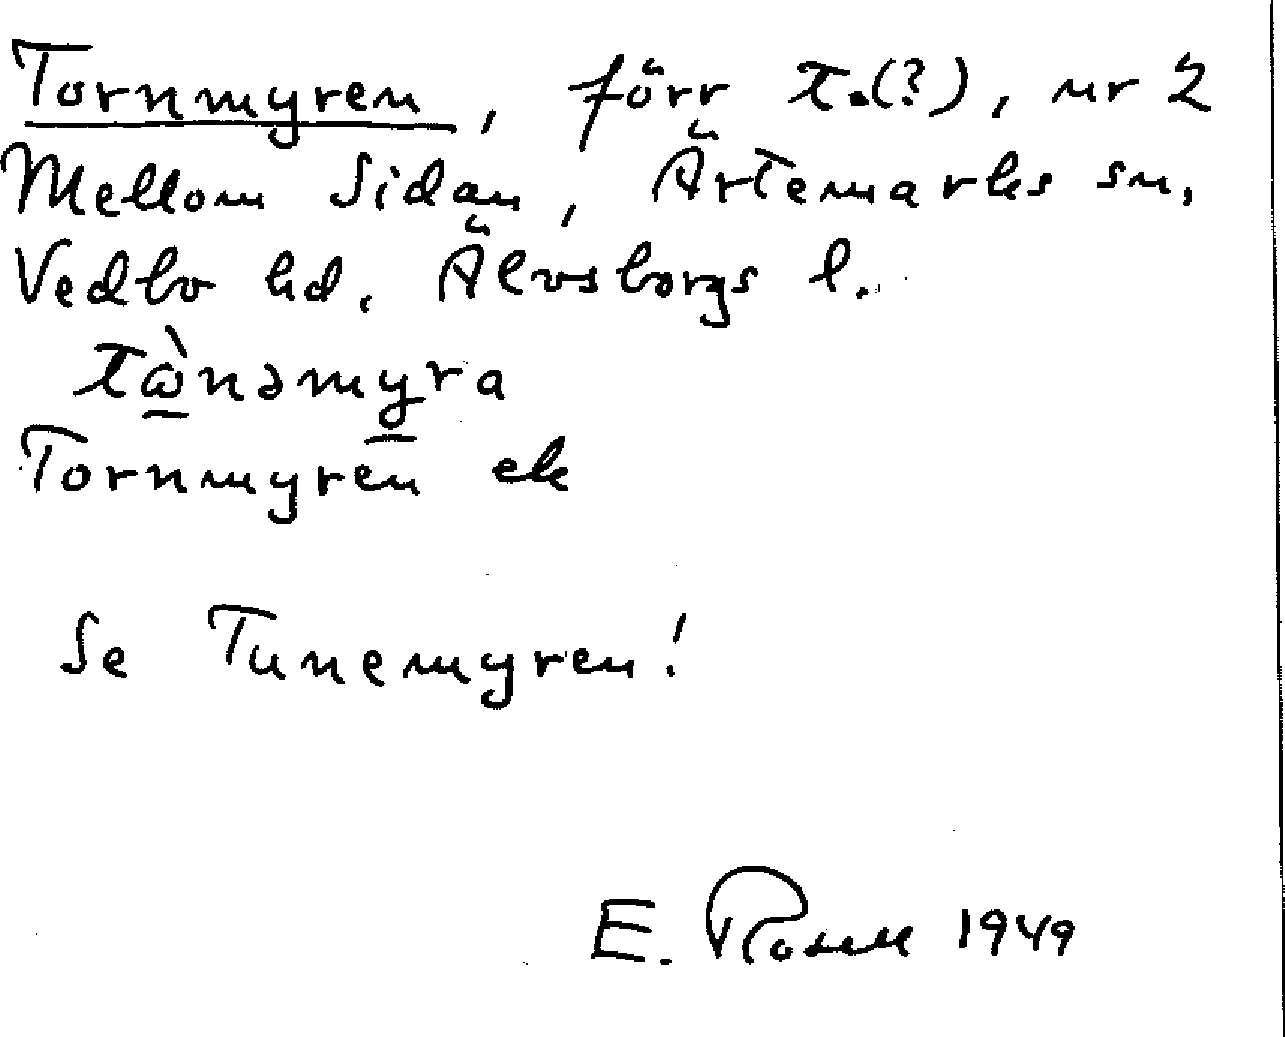 Tornmyren, förr t.(?), nr 2
Mellom Sidan, Ärtemarks sn,
Vedbo hd, Älvsborgs l.
tὼ̱nəmyra
Tornmyren ek
Se Tunemyren!
E. Rosell 1949